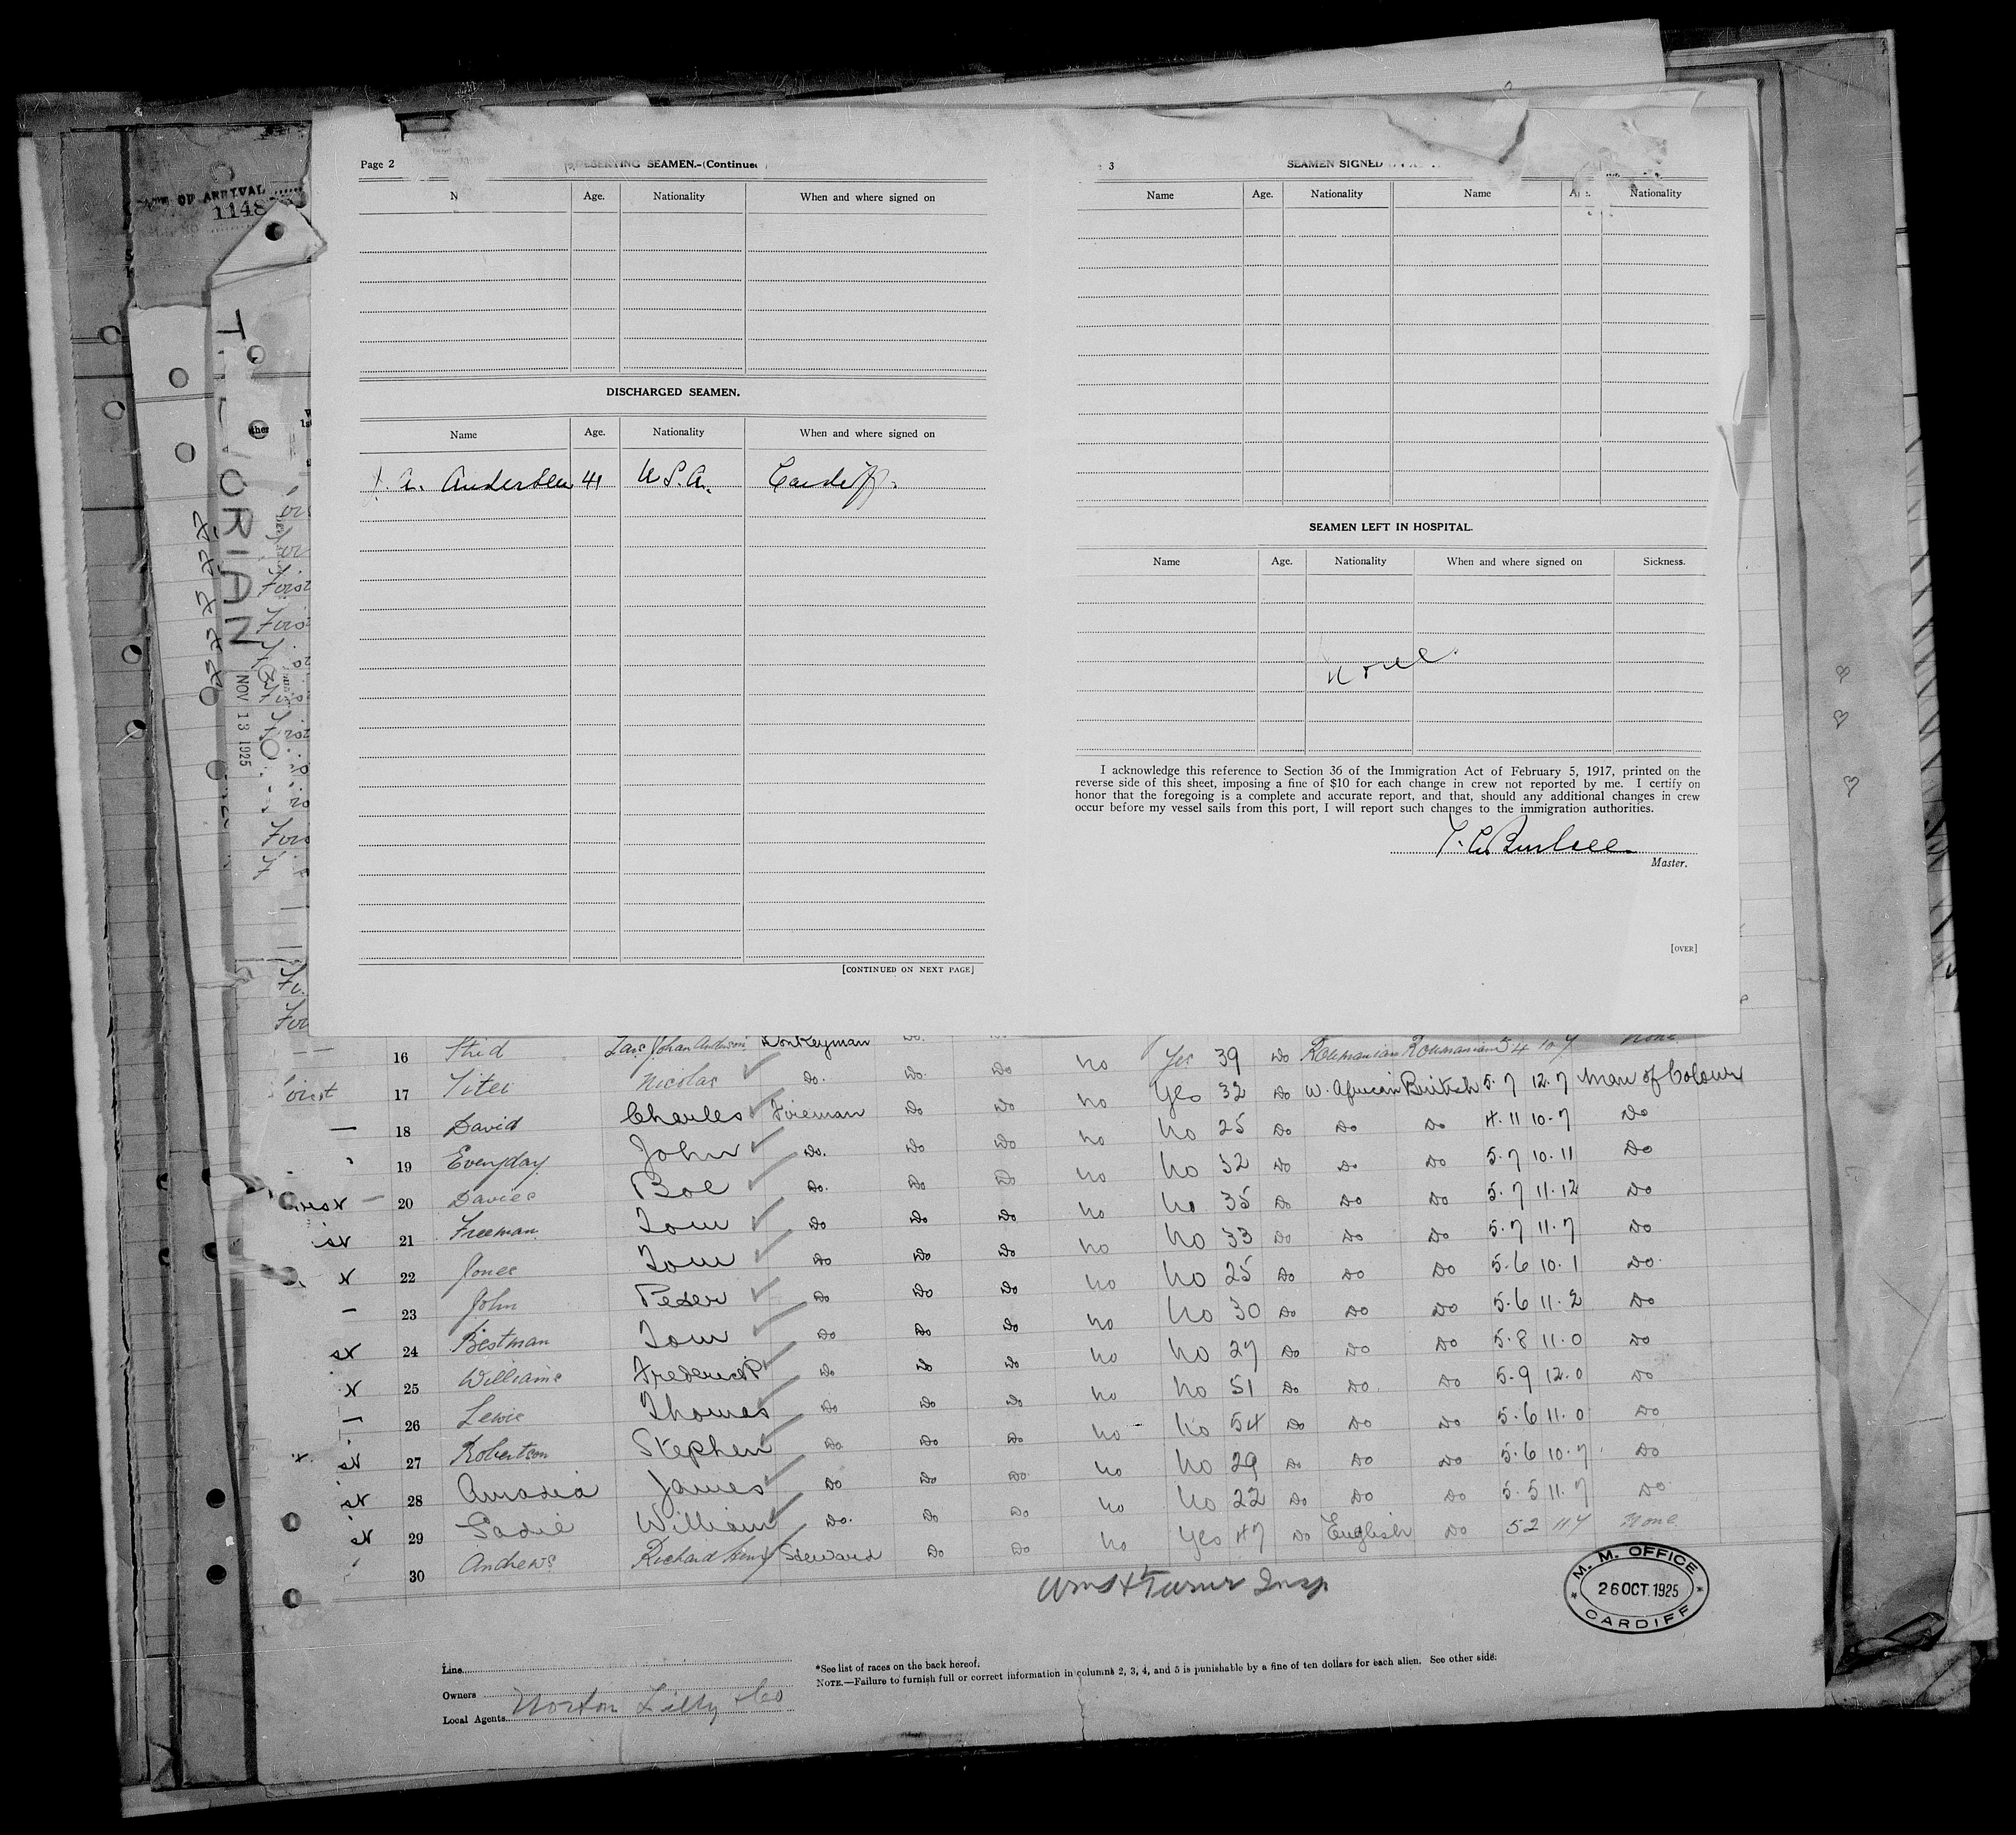 Page 2
DESERTING SEAMEN.-(Continued
3
SEAMEN SIGNED
Age. Nationality When and where signed on
Name Age. Nationality Name Nationality
DISCHARGED SEAMEN.
Name Age. Nationality When and where signed on
A. Andersen 41 U.S.A. Cardiff.
SEAMEN LEFT IN HOSPITAL.
Name Age. Nationality When and where signed on Sickness.
None.
I acknowledge this reference to Section 36 of the Immigration Act of February 5, 1917, printed on the
reverse side of this sheet, imposing a fine of $10 for each change in crew not reported by me. I certify on
honor that the foregoing is a complete and accurate report, and that, should any additional changes in crew
occur before my vessel sails from this port, I will report such changes to the immigration authorities.
Master.
[OVER]
[CONTINUED ON NEXT PAGE]
OF ARRIVAL
1148
ORIAN
NOV 13 1925
First
First
16 Lars Johan Anderson Donkeyman Do.
17 Titei Nicolas Do. Do. Do No Yes 39 Do Roumanian Roumanian 5 4 10 7 None
18 David Charles Fireman Do Do No Yes 32 Do W. African British 5.7 12.7 Man of Colour
19 Everyday John Do. Do Do No No 25 Do Do Do 4.11 10.7 Do
20 Davies Boe Do. Do Do No No 32 Do Do Do 5.7 10.11 Do
21 Freeman Tom Do Do Do No No 35 Do Do Do 5.7 11.12 Do
22 Jones Tom Do Do Do No No 33 Do Do Do 5.7 11.7 Do
23 John Peter Do Do Do No No 25 Do Do Do 5.6 10.1 Do.
24 Bestman Tom Do Do Do No No 30 Do Do Do 5.6 11.2 Do
25 Williams Frederick Do Do Do No No 27 Do Do Do 5.8 11.0 Do
26 Lewis Thomas Do Do Do No No 51 Do Do. Do 5.9 12.0 Do
27 Robertson Stephen Do Do Do No No 54 Do Do Do 5.6 11.0 Do
28 Amadia James Do Do Do. No No 29 Do Do Do 5.6 10.7 Do
29 Sadie William Do. Do Do No No 22 Do Do Do 5.5 11.7 Do
30 Andrews Richard Henry Steward Do Do No Yes 47 Do English Do 5 2 11 7 None
Wm H Turner Insp
M. M. OFFICE
26 OCT. 1925
CARDIFF
Line
Owners
Local Agents Norton Lilly & Co
*See list of races on the back hereof.
NOTE.—Failure to furnish full or correct information in columns 2, 3, 4, and 5 is punishable by a fine of ten dollars for each alien. See other side.